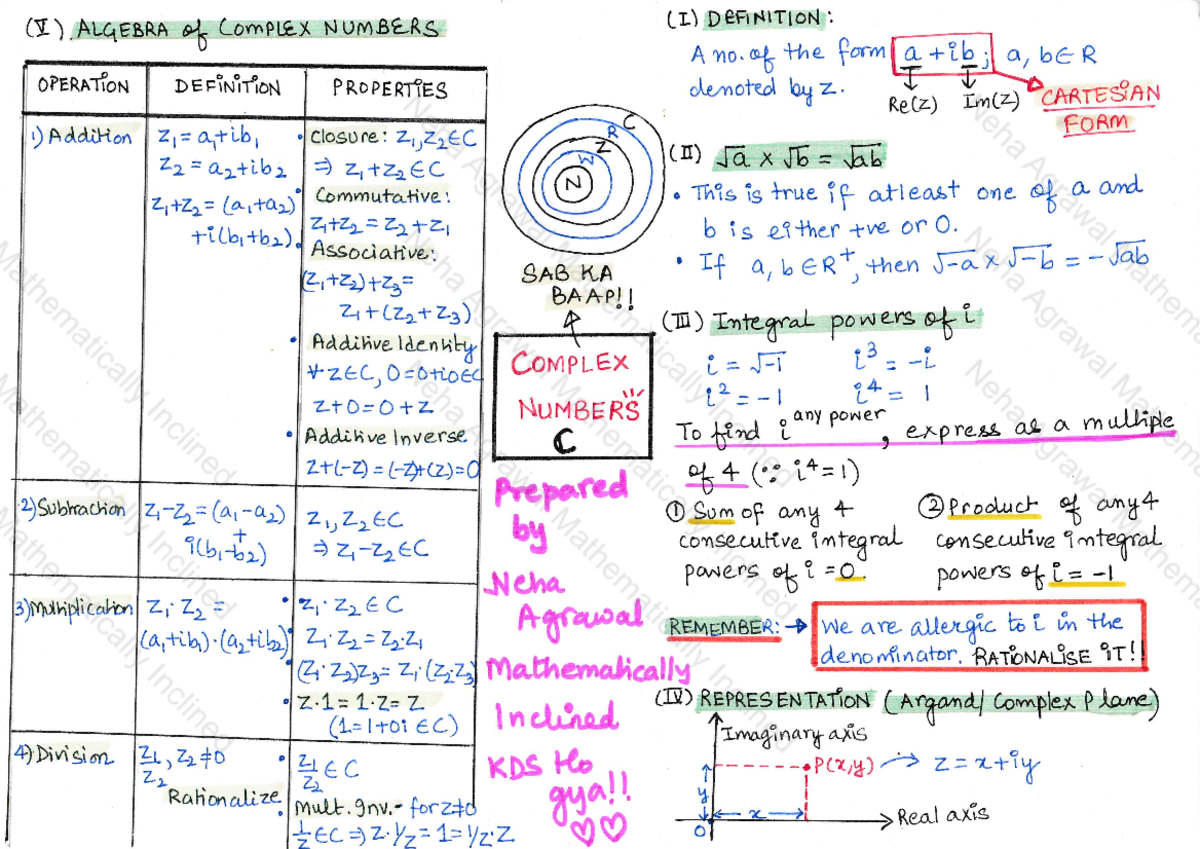 (V) ALGEBRA of COMPLEX NUMBERS
OPERATION
DEFINITION
PROPERTIES
1) Addition
z₁ = a₁+ib₁
z₂ = a₂+ib₂
z₁+z₂ = (a₁+a₂)
+i(b₁+b₂)
• Closure: z₁,z₂ ∈ C
⇒ z₁+z₂ ∈ C
• Commutative:
z₁+z₂ = z₂+z₁
• Associative:
(z₁+z₂)+z₃ =
z₁+(z₂+z₃)
• Additive Identity
∀ z∈C, 0=0+i0∈C
z+0=0+z
• Additive Inverse
z+(-z)=(-z)+(z)=0
2) Subtraction
z₁-z₂ = (a₁-a₂)
+
i(b₁-b₂)
z₁,z₂ ∈ C
⇒ z₁-z₂ ∈ C
3) Multiplication
z₁·z₂ =
(a₁+ib₁)·(a₂+ib₂)
• z₁·z₂ ∈ C
• z₁·z₂ = z₂·z₁
• (z₁·z₂)z₃ = z₁·(z₂z₃)
• z·1 = 1·z = z
(1=1+0i ∈ C)
4) Division
z₁/z₂, z₂≠0
Rationalize
• z₁/z₂ ∈ C
• Mult. Inv.- for z≠0
1/z ∈ C ⇒ z·1/z = 1 = 1/z·z
C
R
Z
W
N
SAB KA
BAAP!!
COMPLEX
NUMBERS
C
Prepared
by
Neha
Agrawal
Mathematically
Inclined
KDS Ho
gya!!
(I) DEFINITION:
A no. of the form a + ib; a, b ∈ R
denoted by z.
Re(z) Im(z)
CARTESIAN
FORM
(II) √a × √b = √ab
• This is true if atleast one of a and
b is either +ve or 0.
• If a, b ∈ R⁺, then √-a × √-b = -√ab
(III) Integral powers of i
i = √-1 i³ = -i
i² = -1 i⁴ = 1
To find i^any power, express as a multiple
of 4 (∵ i⁴=1)
① Sum of any 4
consecutive integral
powers of i = 0.
② Product of any 4
consecutive integral
powers of i = -1
REMEMBER: →
We are allergic to i in the
denominator. RATIONALISE iT!!
(IV) REPRESENTATION (Argand/Complex Plane)
Imaginary axis
P(x,y) → z = x+iy
y
x
0
Real axis
Neha Agrawal Mathematically Inclined